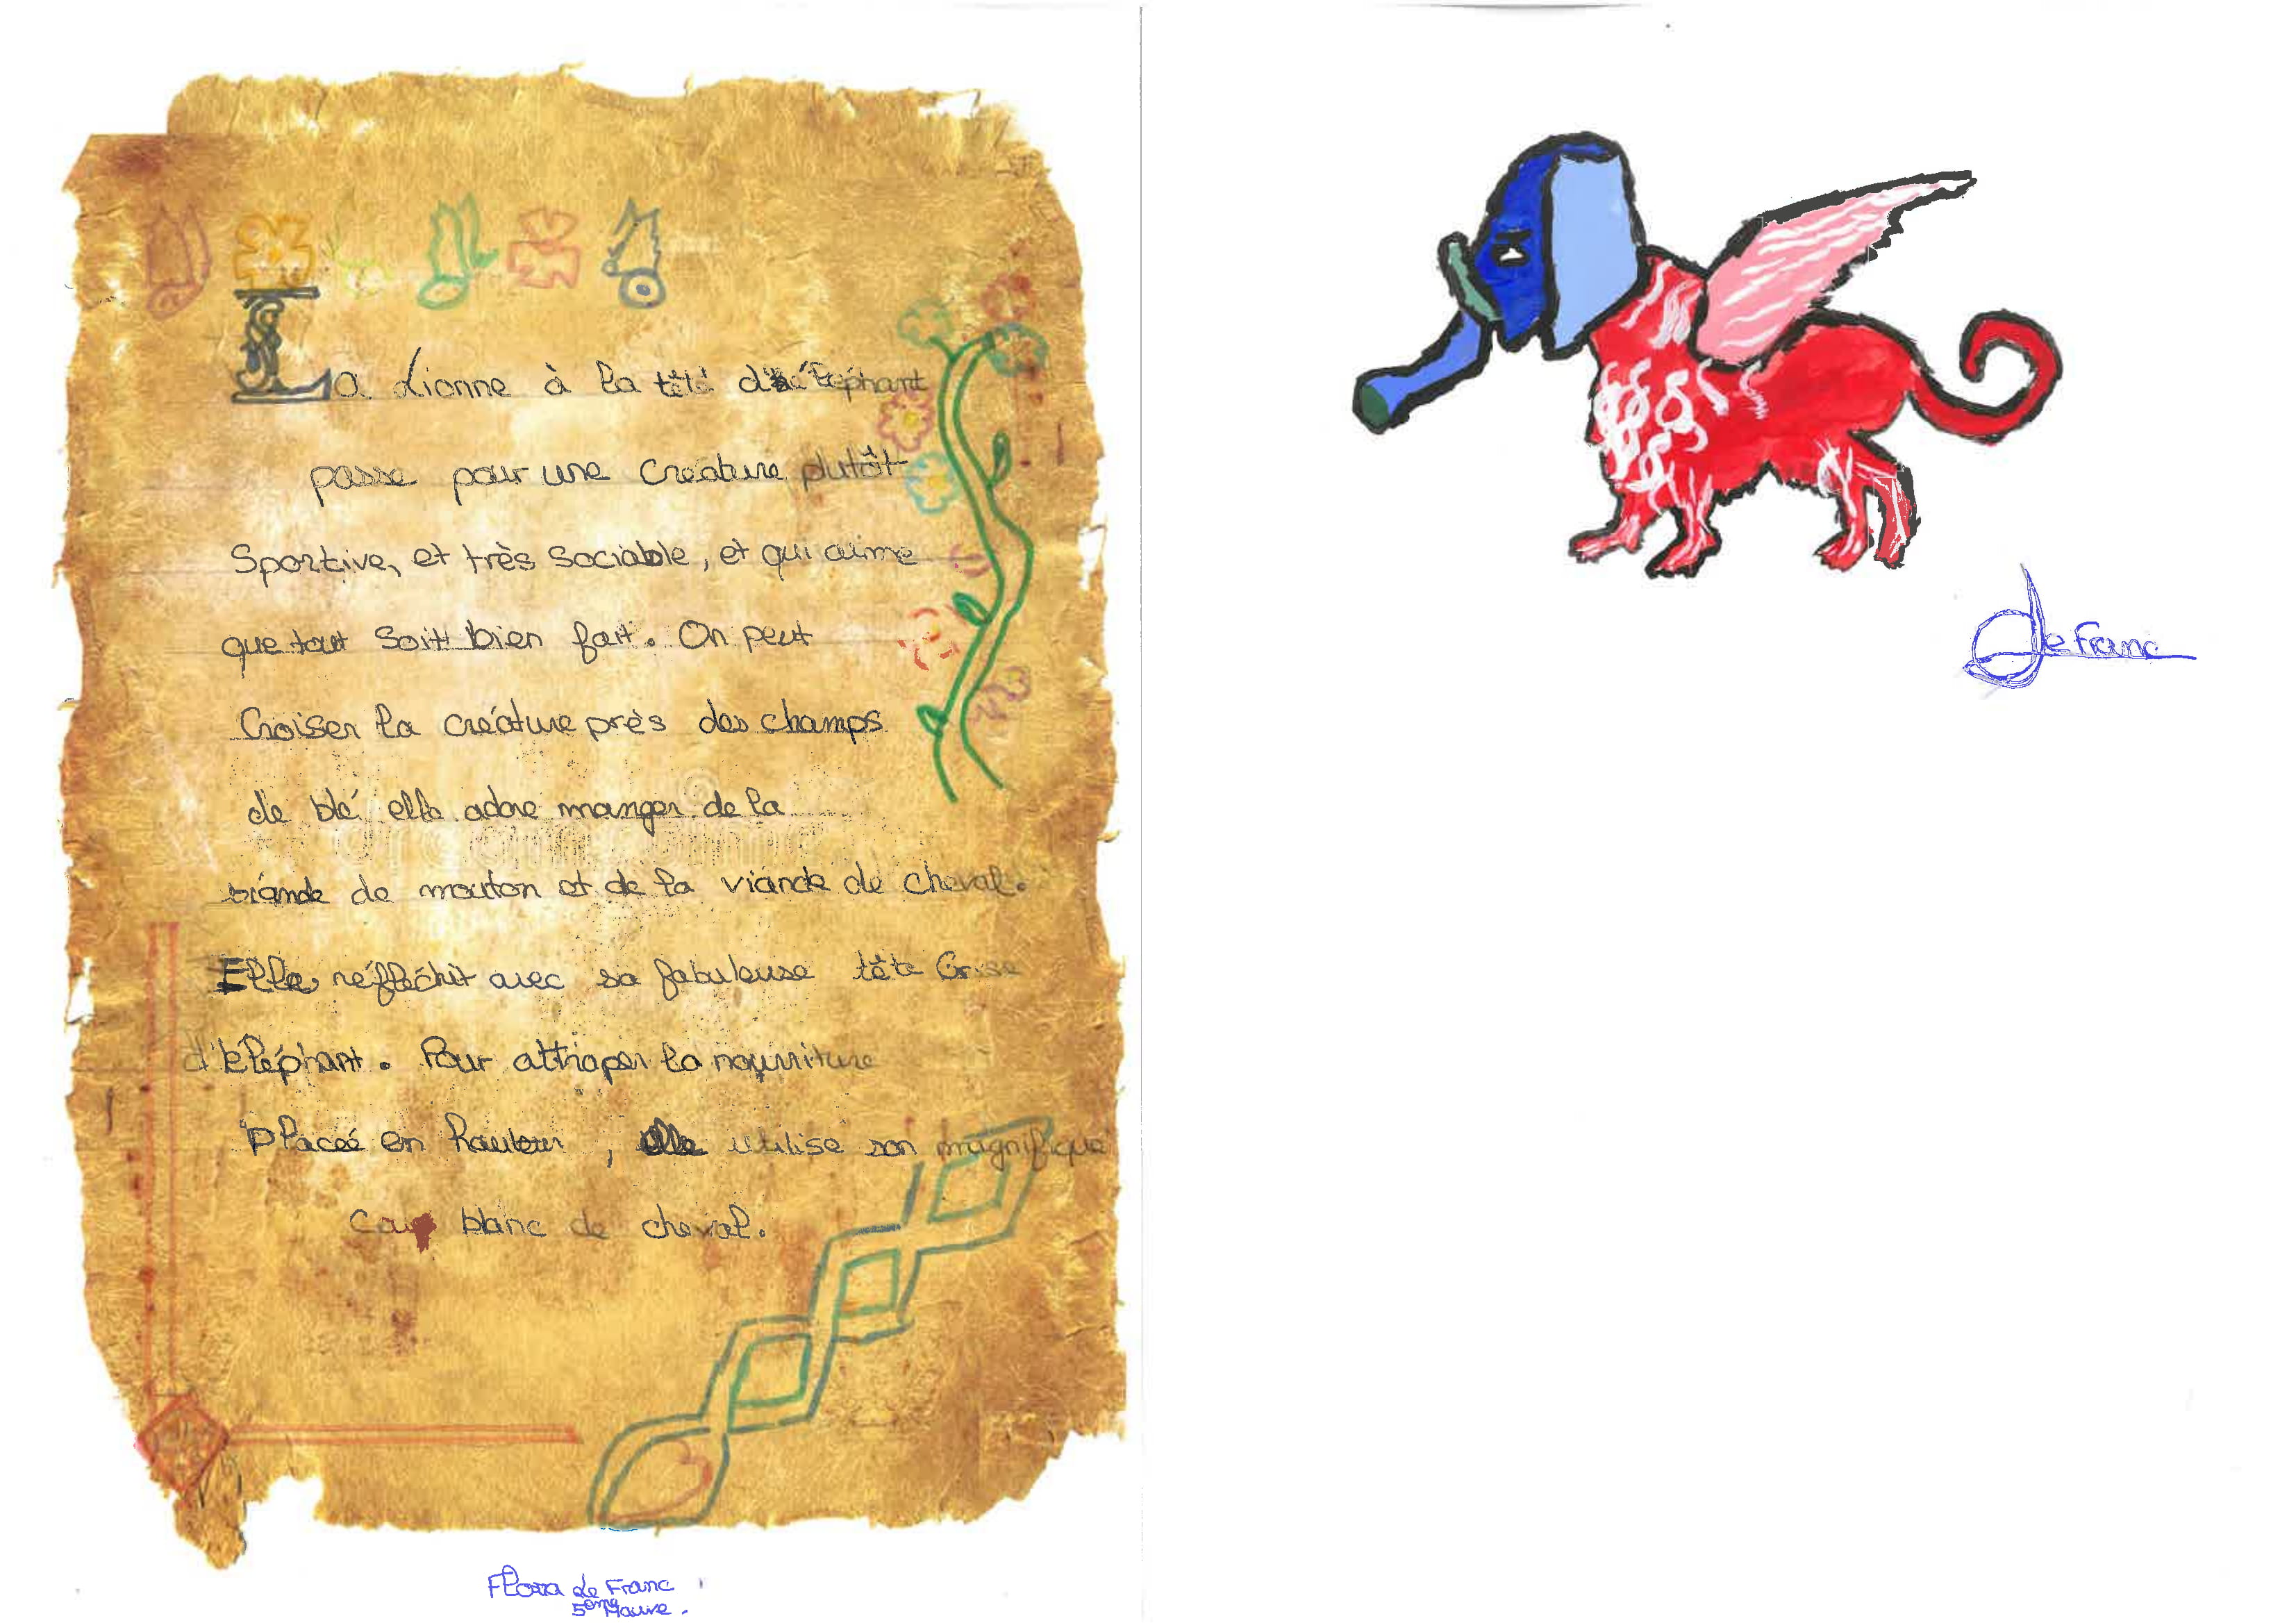 La Lionne à la tête d'éléphant
passe pour une créature plutôt
Sportive, et très sociable, et qui aime
que tout soit bien fait. On peut
Croiser la créature près des champs
de blé elle adore manger de la
viande de mouton et de la viande de cheval.
Elle réfléchit avec sa fabuleuse tête Grise
d'éléphant. Pour attraper la nourriture
Placée en hauteur, elle utilise son magnifique
blanc de cheval.
Flora de Franc
5ème Mauve.
de Franc